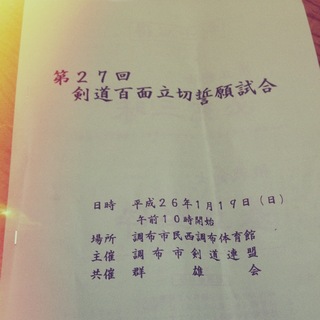 第27回
剣道百面立切誓願試合
日時 平成26年1月19日(日)
午前10時開始
場所 調布市民西調布体育館
主催 調布市剣道連盟
共催 群雄会